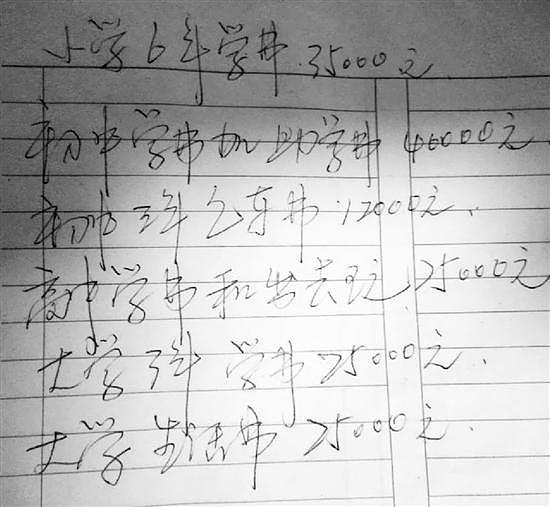 小学6年学费.35000元.
初中学费加助学费 46000元
初中三年包车费.12000元.
高中学费和 25000元
大学3年 学费 25000元.
大学生活费 25000元.